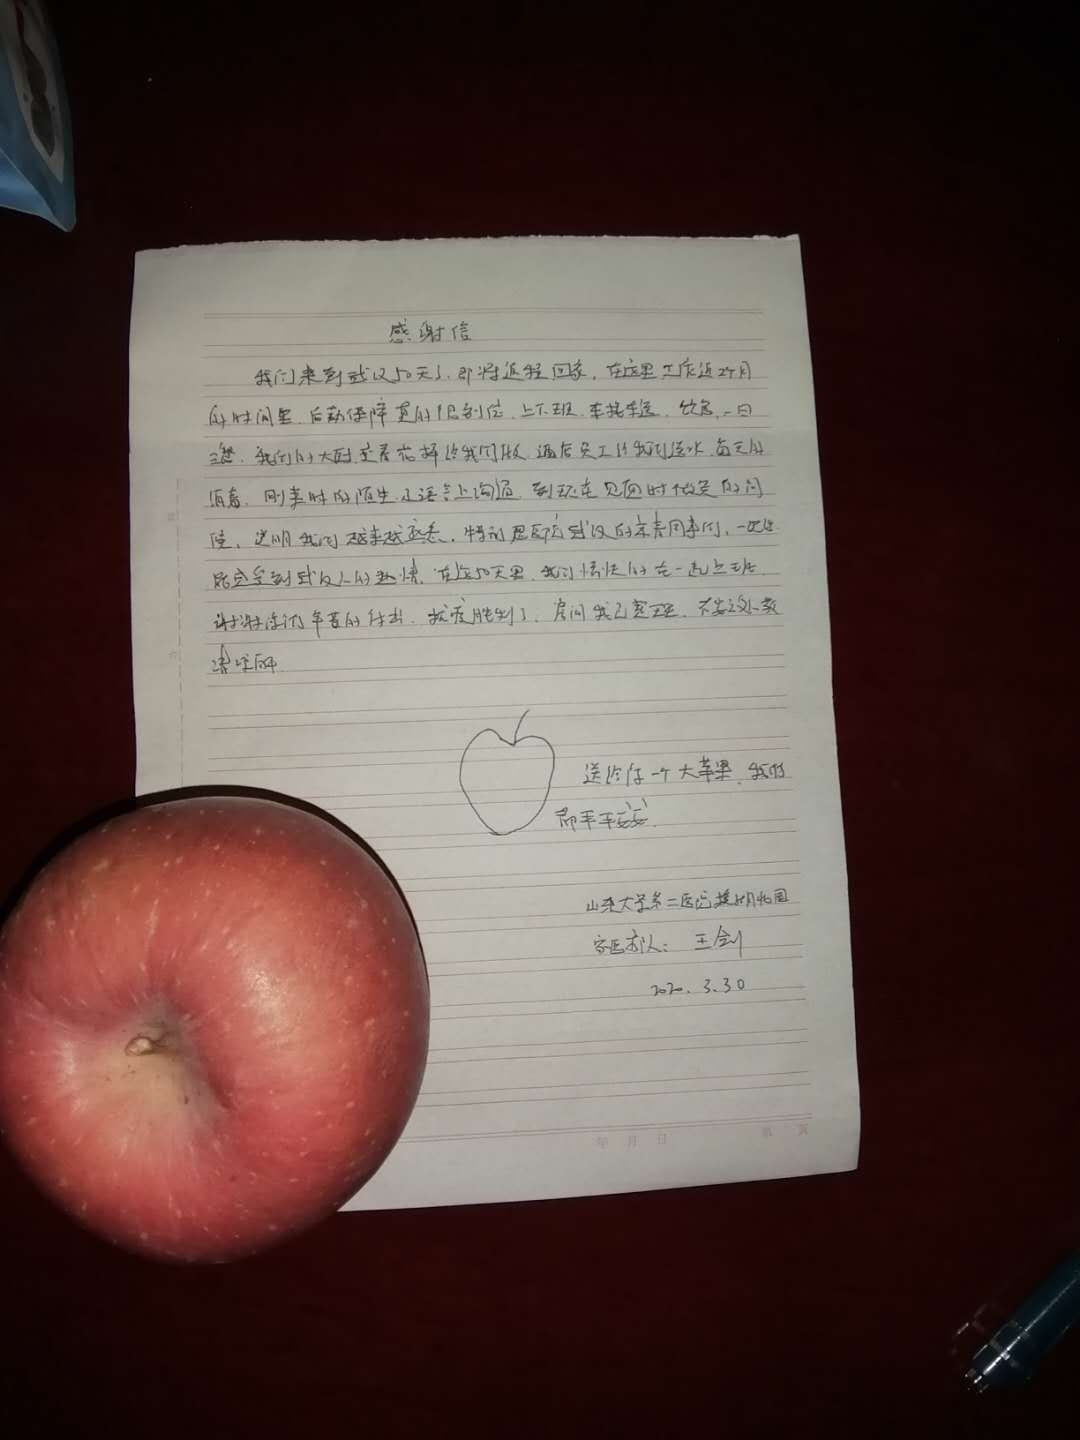 感谢信
我们来到武汉50天了，即将返程回家，在这里工作近2个月
的时间里，后勤保障真的很到位，上下班，车接车送，饮食，一日
三餐，我们的大厨变着花样给我们做，酒店员工给我们送水，每天的
消毒，刚来时的陌生，语言上沟通，到现在见面时微笑的问
候，说明我们越来越熟悉，特别是医院武汉的同事们，一定
能感受到武汉人的热情，在这50天里，我们愉快的在一起上班
谢谢你们辛苦的付出，抗疫胜利了，房间我已整理，不妥之处敬
请谅解
送给你一个大苹果，我们
都平平安安
山东大学第二医院援鄂
队：王剑
2020.3.30
年 月 日 第 页